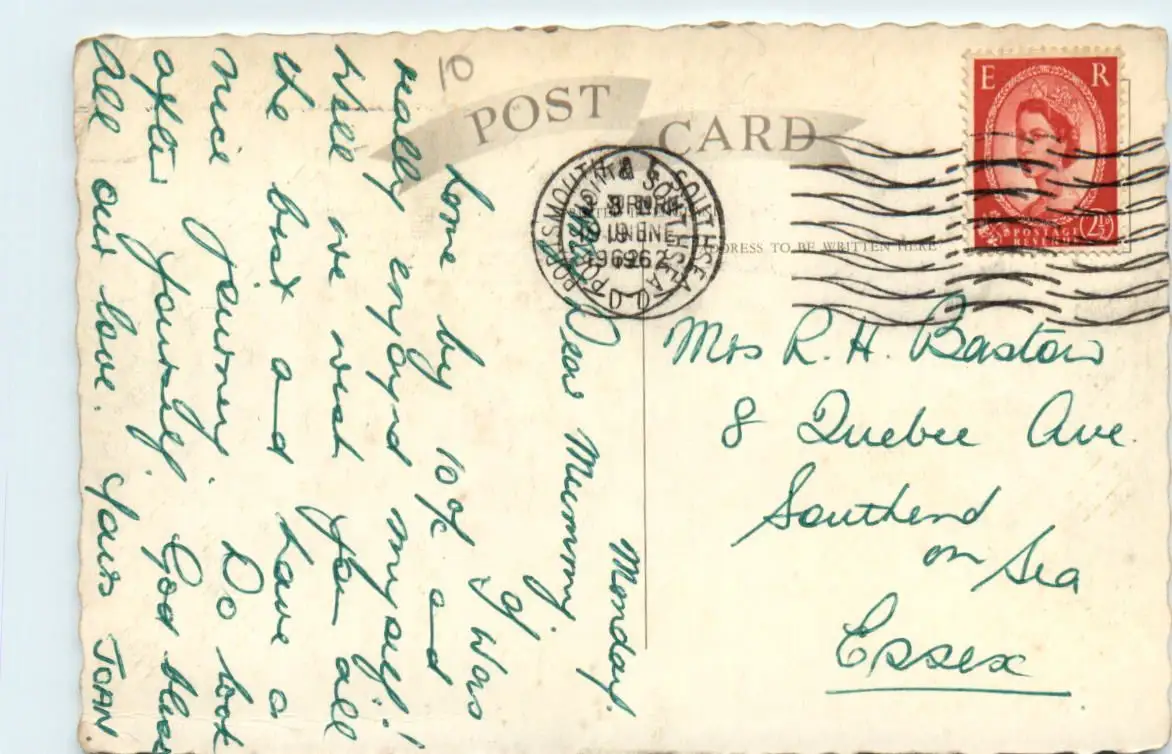 POST CARD
10
PORTSMOUTH & SOUTHSEA
1962
E R
POSTAGE
REVENUE
2½
ADDRESS TO BE WRITTEN HERE
Monday.
Dear Mummy,
I was
home by 10 o/c and
really enjoyed myself!
Well we wish you all
the best and have a
nice journey. Do look
after yourself. God bless
All our love. Yours JOAN
Mrs R. H. Bastow
8 Quebec Ave.
Southend
on Sea
Essex